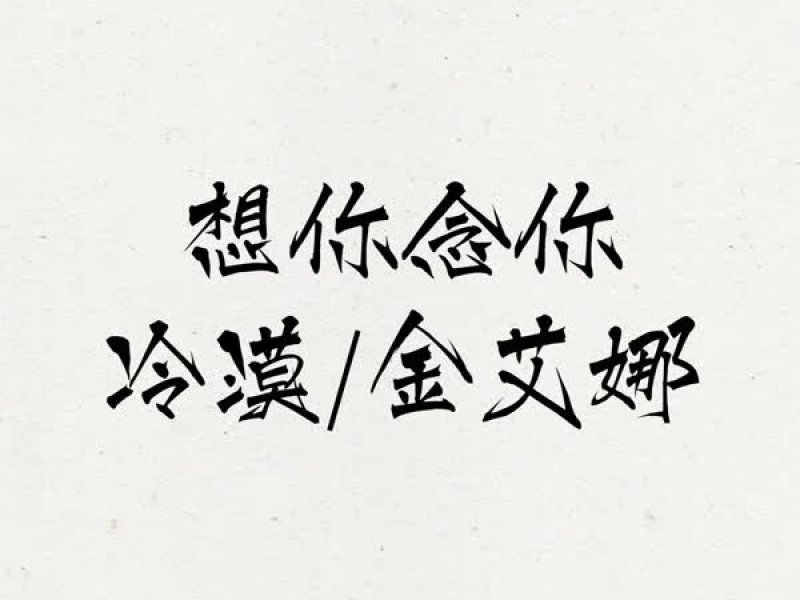 想你念你
冷漠/金艾娜